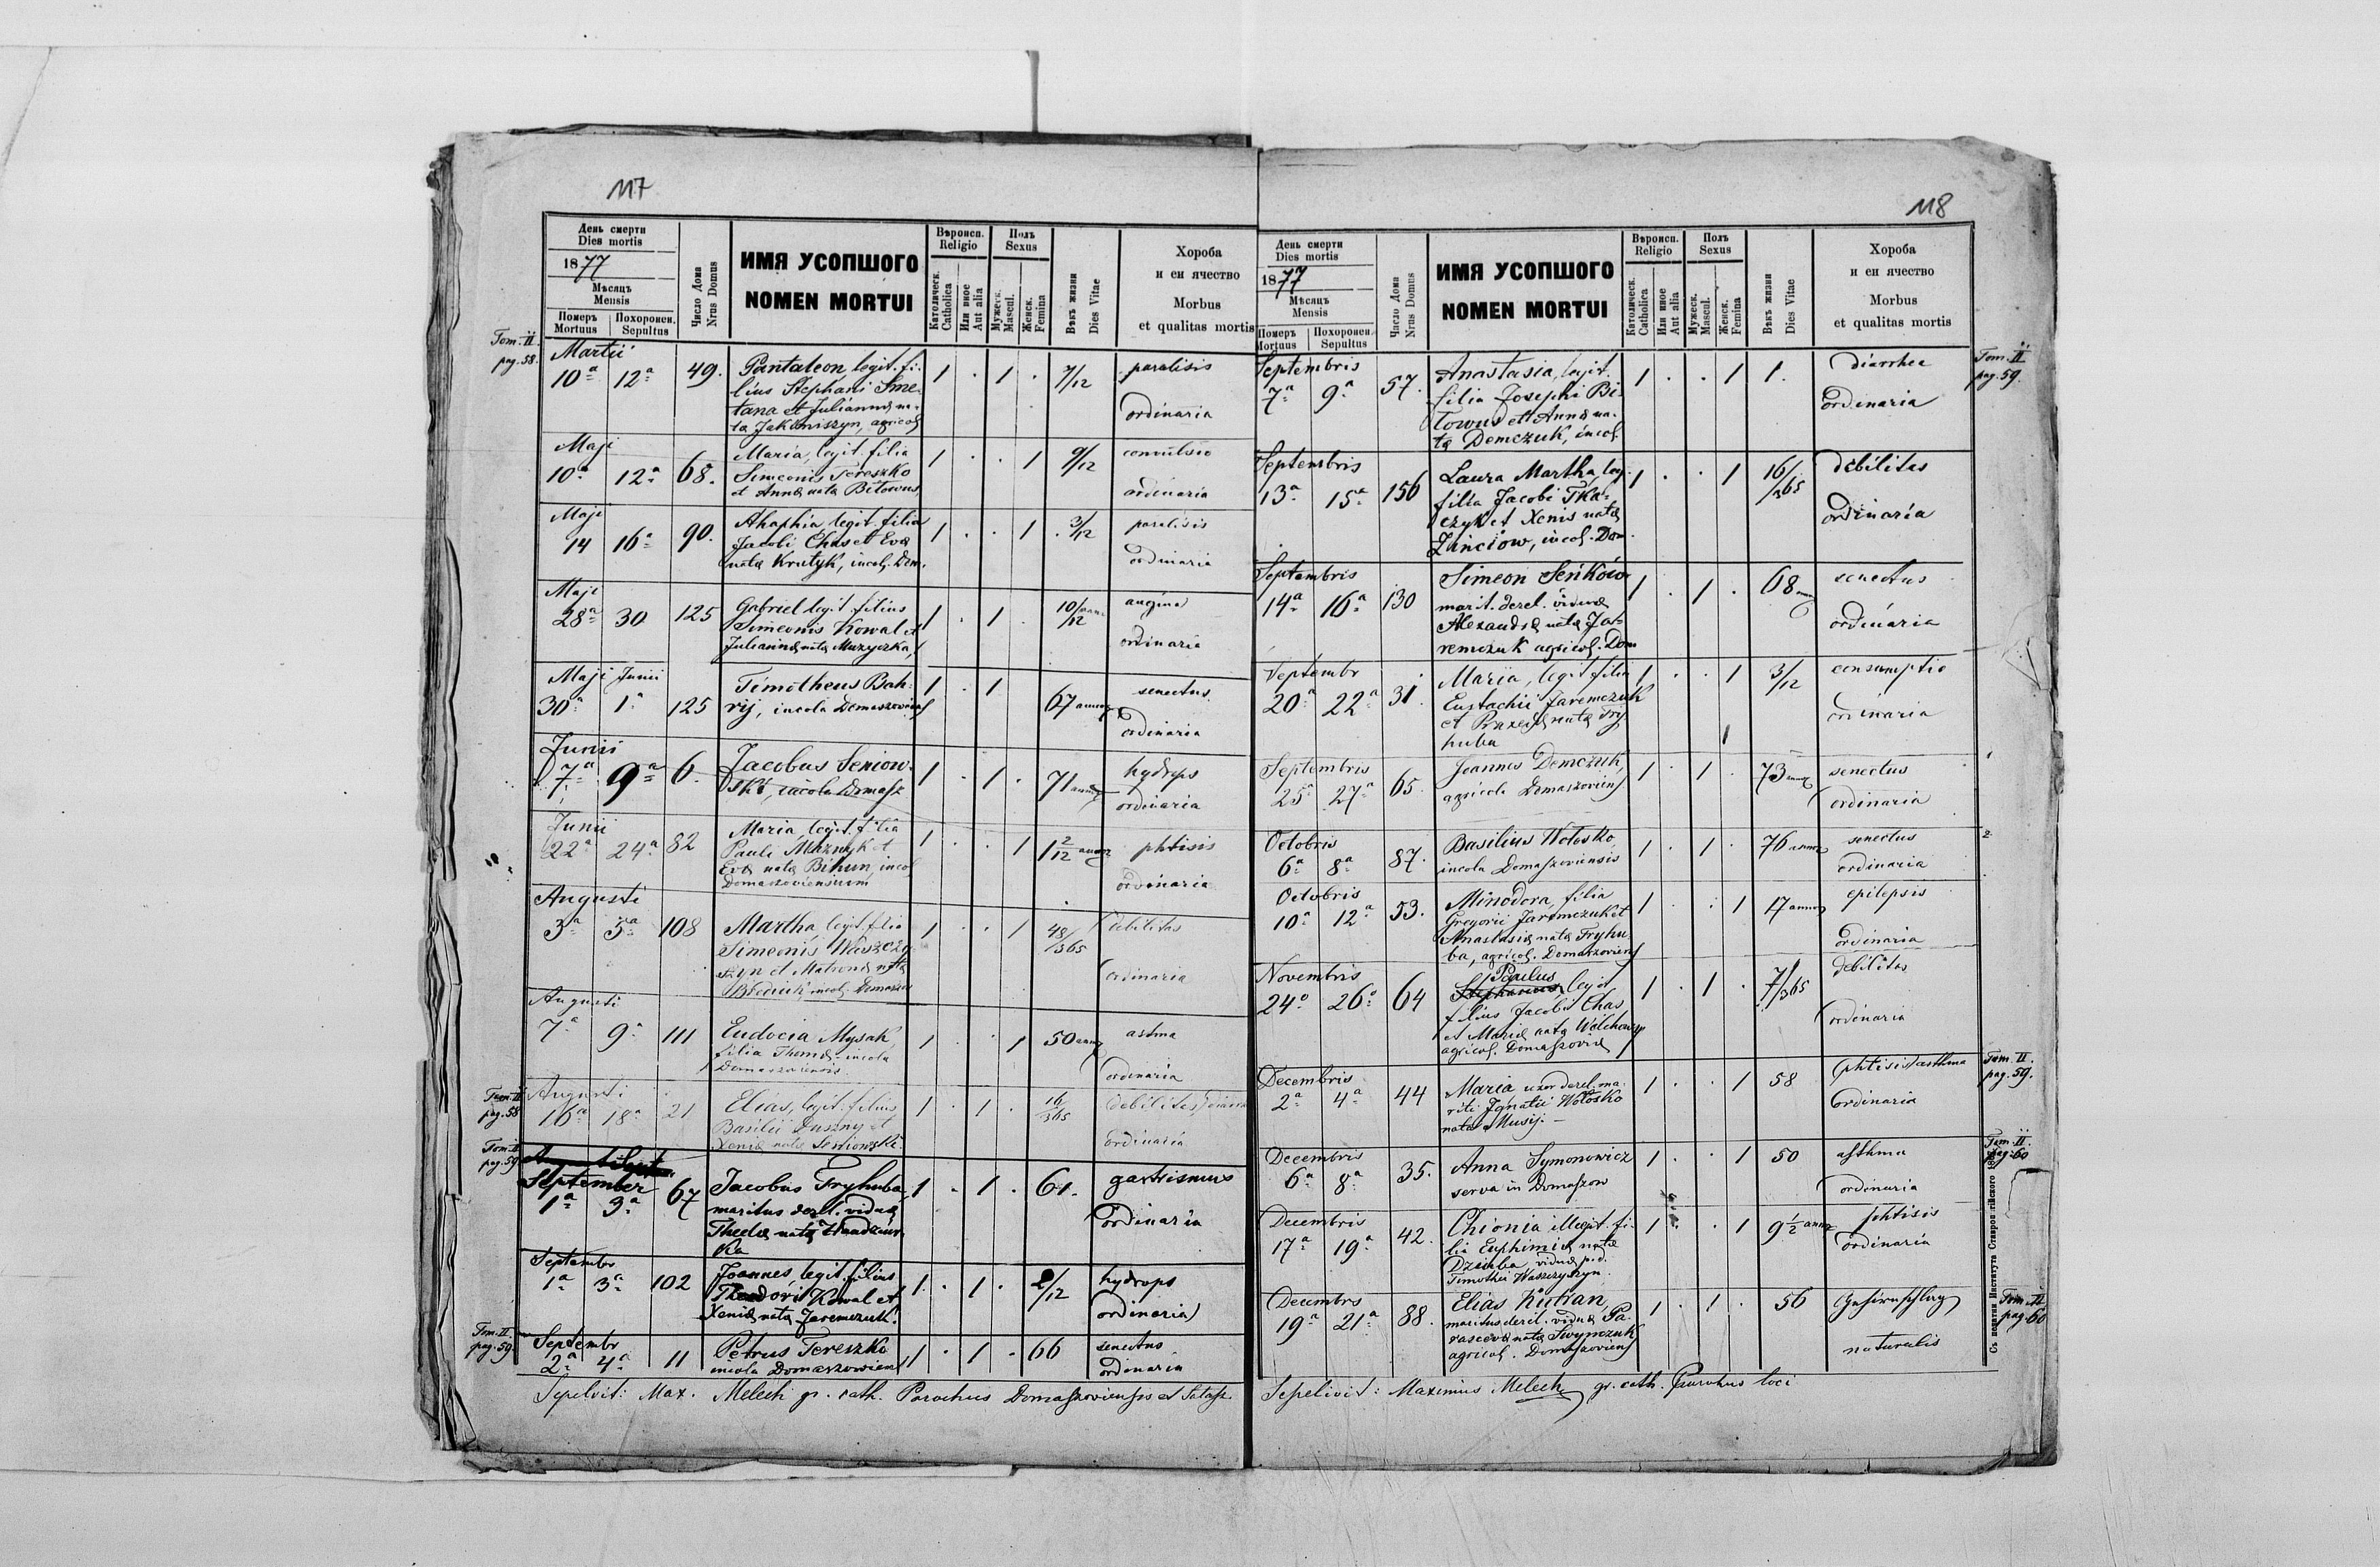 117
День смерти
Dies mortis
1877
Мѣсяцъ
Mensis
Померъ
Mortuus
Похоронен.
Sepultus
Число Дома
Nrus Domus
ИМЯ УСОПШОГО
NOMEN MORTUI
Вѣроисп.
Religio
Католическ.
Catholica
Или иное
Aut alia
Полъ
Sexus
Мужеск.
Mascul.
Женск.
Femina
Вѣкъ жизни
Dies Vitae
Хороба
и еи ячество
Morbus
et qualitas mortis
Tom. II
pag. 58.
Martii
10ª 12ª 49. Pantaleon, legit. fi- 1 . 1 . 7/12 paralisis
lius Stephani Sme-
tana et Juliannæ na- ordinaria
tæ Jakimiszyn, agricol
Maji
10ª 12ª 68. Maria, legit. filia 1 . . 1 9/12 convulsio
Simeonis Tereszko
et Annæ natæ Bitowus, ordinaria
Maji
14 16ª 90. Ahaphia, legit. filia 1 . . 1 . 3/12 paralisis
Jacobi Chas et Evæ
natæ Krutyk, incol. Dom. ordinaria
Maji
28ª 30 125 Gabriel legit. filius 1 . 1 10/12 angina
Simeonis Kowal et
Juliannæ natæ Muzyczka, ordinaria
Maji Junii
30ª 1ª 125 Timotheus Bah- 1 . 1 67 annor senectus
rij, incola Domaszoviens ordinaria
Junii
7ª 9ª 6. Jacobus Seniow- 1 . 1 . 71 annor hydrops
ski, incola Domasz ordinaria
Junii
22ª 24ª 82 Maria, legit. filia 1 . . 1 1 2/12 annor phtisis
Pauli Maznyk et
Evæ natæ Bihun, incol ordinaria
Domaszoviensium
Augusti
3ª 5ª 108 Martha, legit. filia 1 . . 1 48/365 debilitas
Simeonis Waszczy-
szyn et Matronæ natæ ordinaria
incol. Domaszov
Augusti
7ª 9ª 111 Eudocia Mysak, 1 . . 1 50 annor astma
filia Thomæ - incola
Domaszoviensis ordinaria
Tom. II
pag. 58
Augusti
16ª 18ª 21 Elias, legit. filius 1 . 1 . 16/365 debilitas
Basilii Duszny et
Xeniæ natæ Seniowski ordinaria
Tom. II
pag. 59
September
1ª 3ª 67 Jacobus Fryhuba, 1 . 1 . 61. gastrismus
maritus derel. viduæ
Theclæ natæ ordinaria
ka
Septembr
1ª 3ª 102 Joannes, legit. filius 1. . 1 . 2/12 hydrops
Theodori Kowal et
Xeniæ natæ Jaremczuk. ordinaria
Tom. II.
pag. 59.
Septembr
2ª 4ª 11 Petrus Tereszko 1 . 1 . 66 senectus
incola Domaszowiens ordinaria
Sepelivit: Max. Melech gr. cath. Parochus Domaszoviensis et
118
День смерти
Dies mortis
1877
Мѣсяцъ
Mensis
Померъ
Mortuus
Похоронен.
Sepultus
Число Дома
Nrus Domus
ИМЯ УСОПШОГО
NOMEN MORTUI
Вѣроисп.
Religio
Католическ.
Catholica
Или иное
Aut alia
Полъ
Sexus
Мужеск.
Mascul.
Женск.
Femina
Вѣкъ жизни
Dies Vitae
Хороба
и еи ячество
Morbus
et qualitas mortis
Tom. II
pag. 59.
Septembris
7ª 9ª 57. Anastasia, legit. 1 . . 1 1. diarrhea
filia Josephi Bi-
towus et Annæ na- ordinaria
tæ Demczuk, incol.
Septembris
13ª 15ª 156 Laura Martha, leg. 1 . . 1 16/365 debilitas
filia Jacobi Tka-
czyk et Xenis natæ ordinaria
Zinciow, incol. Dom.
Septembris
14ª 16ª 130 Simeon Seńków 1 . 1 . 68 annor senectus
marit. derel. viduæ
Alexandræ natæ Ja- ordinaria
remczuk agricol. Dom
Septembr
20ª 22ª 31. Maria, legit. filia 1 . . 1 3/12 consumptio
Eustachii Jaremczuk
et Praxedæ natæ Fry- ordinaria
huba
Septembris
25ª 27ª 65. Joannes Demczuk, 1 . 1 . 73 annor senectus
agricola Domaszoviens ordinaria
Octobris
6ª 8ª 87. Basilius Wołosko, 1 . 1 . 76 annor senectus
incola Domaszoviensis ordinaria
Octobris
10ª 12ª 53. Minodora, filia 1 . . 1 17 annor epilepsis
Gregorii Jaremczuk et
Anastasiæ natæ Fryhu- ordinaria
ba, agricol. Domaszoviens
Novembris
Paulus
24ª 26ª 64 Stephanus, legit 1 . 1 . 7/365 debilitas
filius Jacobi Chas
et Mariæ natæ ordinaria
agricol. Domaszoviæ
Tom. II.
pag. 59.
Decembris
2ª 4ª 44 Maria uxor derel. ma- 1 . . 1 58 phtisis asthma
riti Ignatii Wołosko ordinaria
nata Musij. -
Tom. II.
pag. 60
Decembris
6ª 8ª 35. Anna Symonowicz 1 . . 1 50 asthma
serva in Domaszow ordinaria
Decembris
17ª 19ª 42. Chionia illegit. fi- 1 . . 1 9 1/2 annor phtisis
lia Euphimiæ natæ ordinaria
Dziuba viduæ p.d.
Timothei Waszczyszyn.
Tom. II
pag. 60
Decembrs
19ª 21ª 88. Elias Kuhan, 1 . 1 . 56
maritus derel. viduæ Pa-
rascevæ natæ Swymczuk naturalis
agricol. Domaszoviens
Sepelivit: Maximus Melech gr. cath. Parochus loci